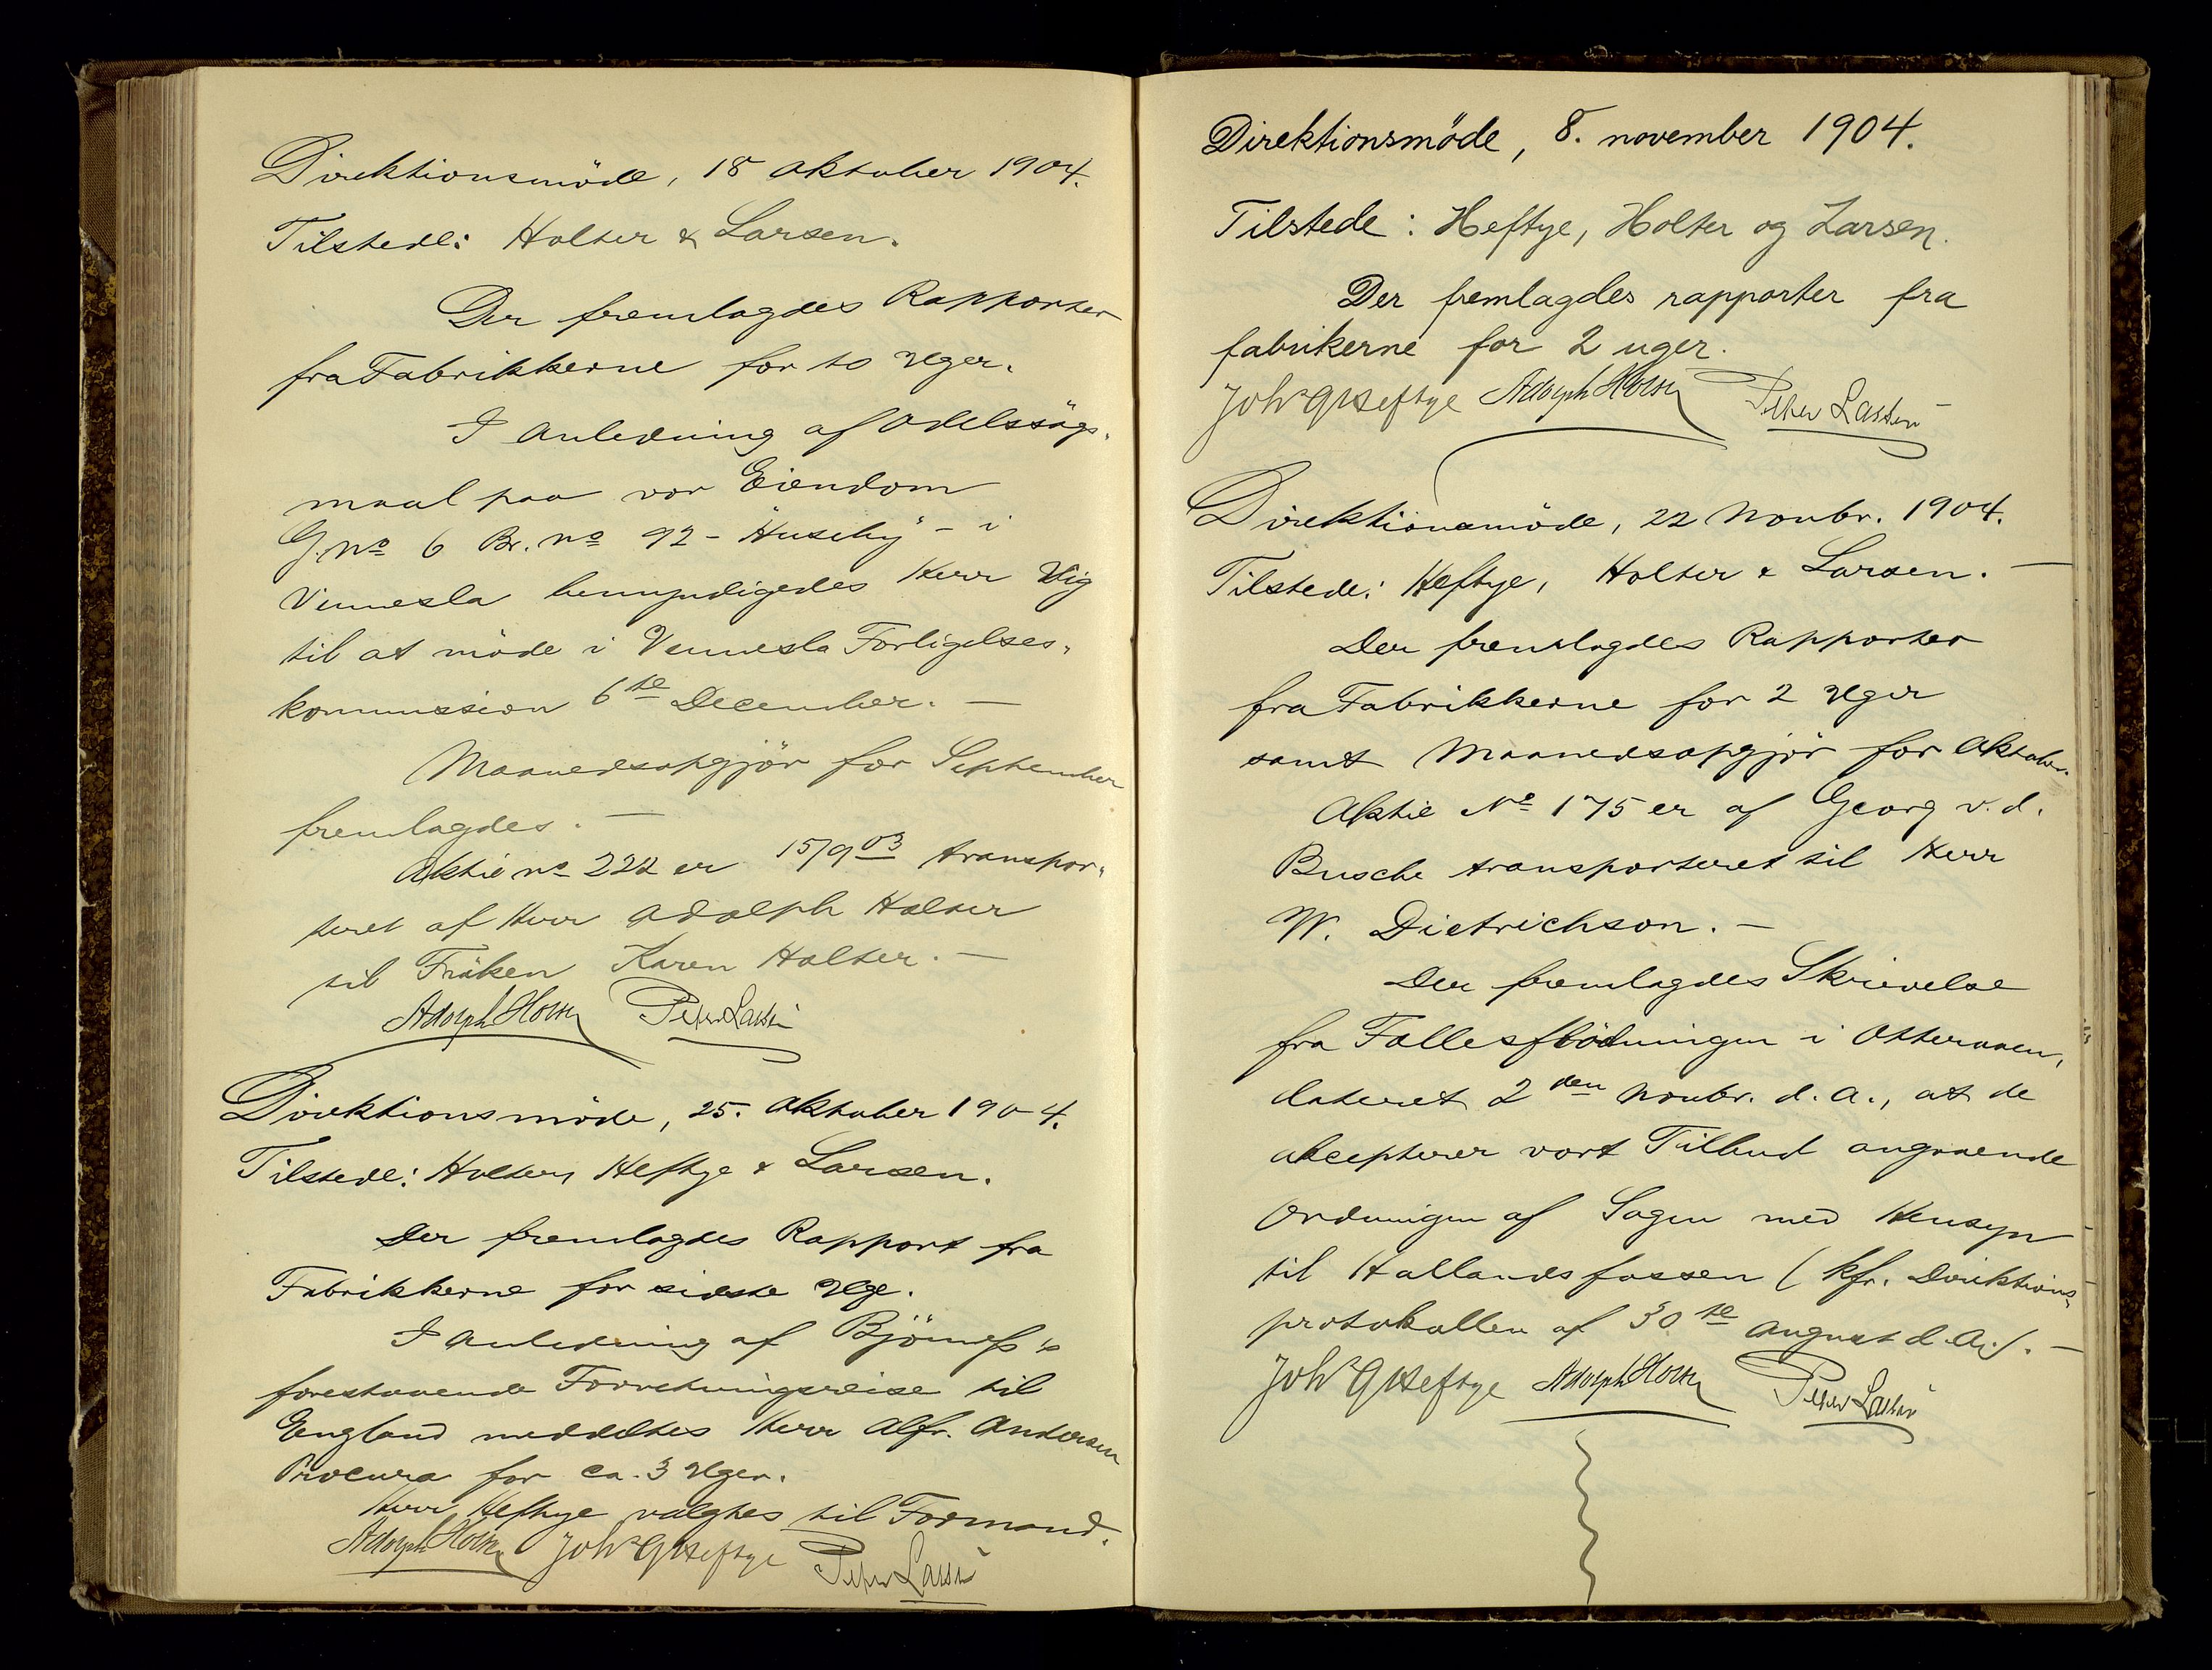 Direktionsmöde, 18 Oktober 1904.
Tilstede: Holter & Larsen.
Der fremlagdes Rapporter
fra Fabrikkerne for to Uger.
I Anledning af Odelssøgs-
maal paa vor Eiendom
G. No 6 Br. no 92 - "Huseby" - i
Vennesla bemyndigedes Herr Vig
til at möde i Vennesla Forligelses-
kommission 6te December. —
Maanedsopgjör for September
fremlagdes. —
Aktie no 222 er 15/9 03 transpor-
teret af Herr Adolph Holter
til Fröken Karen Holter. —
Adolph Holter Peter Larsen
Direktionsmöde, 25. Oktober 1904.
Tilstede: Holter, Heftye & Larsen.
Der fremlagdes Rapport fra
Fabrikkerne for sidste Uge.
I Anledning af
forestaaende Forretningsreise til
England meddeltes Herr Alfr. Andersen
Procura for ca. 3 Uger.
Herr Heftye valgtes til Formand.
Adolph Holter Johs G Heftye Peter Larsen
Direktionsmöde, 8. november 1904.
Tilstede: Heftye, Holter og Larsen.
Der fremlagdes rapporter fra
fabrikerne for 2 uger.
Johs G Heftye Adolph Holter Peter Larsen
Direktionsmöde, 22 Novbr. 1904.
Tilstede: Heftye, Holter & Larsen. —
Der fremlagdes Rapporter
fra Fabrikkerne for 2 Uger
samt Maanedsopgjör for Oktober.
Aktie No 175 er af Georg v. d.
Busche transporteret til Herr
W. Dietrichson. —
Der fremlagdes Skrivelse
fra Fællesflödningen i Otteraaen,
dateret 2den Novbr. d. A., at de
accepterer vort Tilbud angaaende
Ordningen af Sagen med Hensyn
til Hallandsfossen (kfr. Direktions-
protokollen af 30te August d. A.). —
Johs G Heftye Adolph Holter Peter Larsen